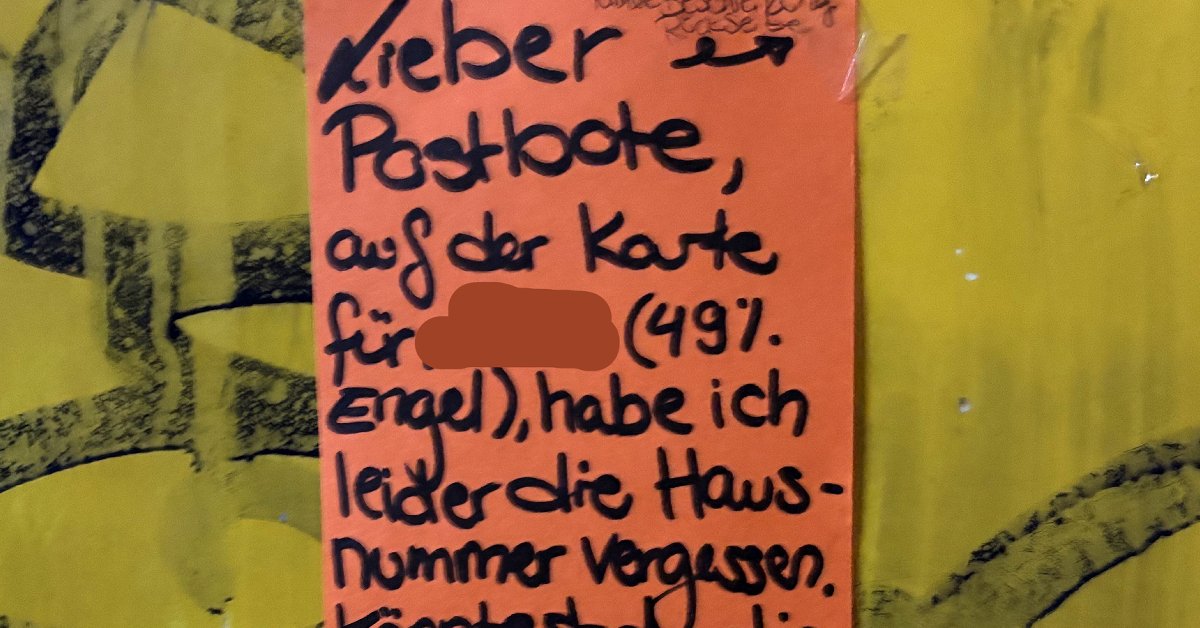 Lieber
Postbote,
auf der Karte
für (49%
Engel), habe ich
leider die Haus-
nummer vergessen.
Könntest